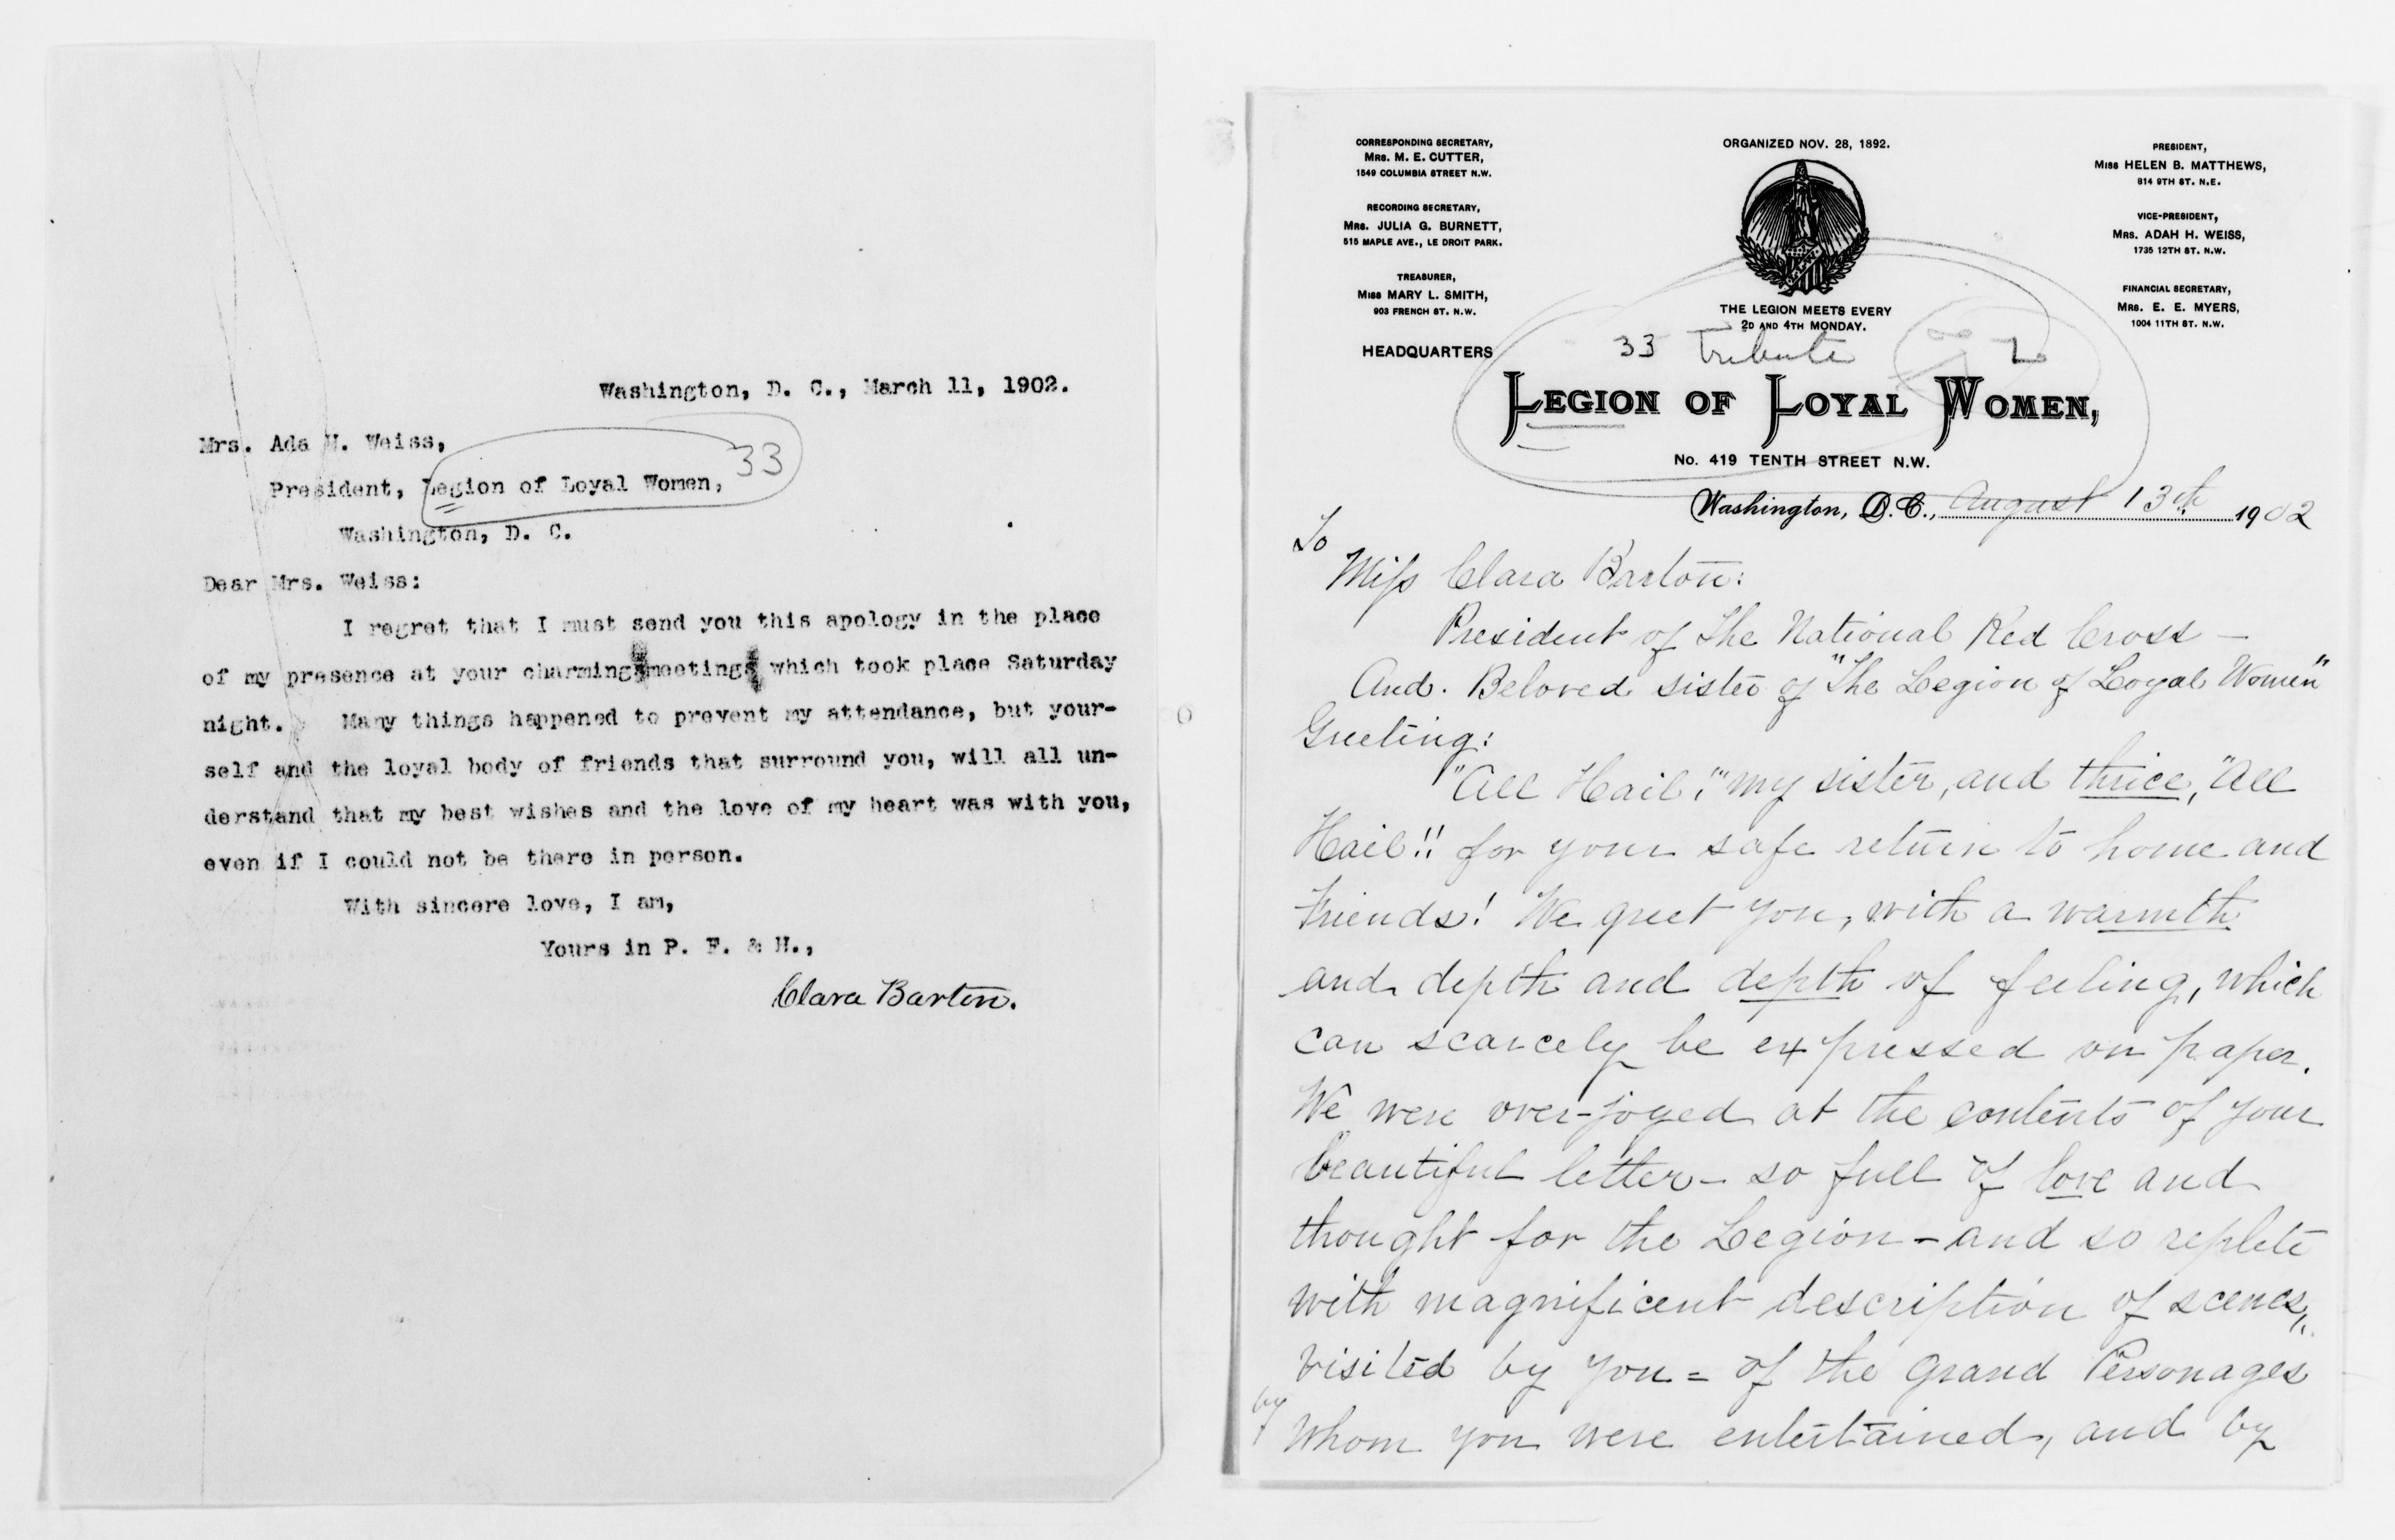 Washington, D. C., March 11, 1902.
Mrs. Ada H. Weiss,
33
President, Legion of Loyal Women,
Washington, D. C.
Dear Mrs. Weiss:
I regret that I must send you this apology in the place
of my presence at your charming meeting which took place Saturday
night. Many things happened to prevent my attendance, but your-
self and the loyal body of friends that surround you, will all un-
derstand that my best wishes and the love of my heart was with you,
even if I could not be there in person.
With sincere love, I am,
Yours in P. F. & H.,
Clara Barton.
CORRESPONDING SECRETARY,
MRS. M. E. CUTTER,
1549 COLUMBIA STREET N.W.
RECORDING SECRETARY,
MRS. JULIA G. BURNETT,
515 MAPLE AVE., LE DROIT PARK.
TREASURER,
MISS MARY L. SMITH,
903 FRENCH ST. N.W.
HEADQUARTERS
ORGANIZED NOV. 28, 1892.
THE LEGION MEETS EVERY
2D AND 4TH MONDAY.
PRESIDENT,
MISS HELEN B. MATTHEWS,
814 9TH ST. N.E.
VICE-PRESIDENT,
MRS. ADAH H. WEISS,
1735 12TH ST. N.W.
FINANCIAL SECRETARY,
MRS. E. E. MYERS,
1004 11TH ST. N.W.
33 Tribute 2
LEGION OF LOYAL WOMEN,
No. 419 TENTH STREET N.W.
Washington, D.C., August 13th 1902
To
Miss Clara Barton:
President of The National Red Cross —
And. Beloved sister of "The Legion of Loyal Women"
Greeting:
"All Hail", my sister, and thrice, "All
Hail"!! for your safe return to home and
Friends! We greet you, with a warmth
and depth and depth of feeling, which
can scarcely be expressed on paper.
We were over-joyed at the contents of your
beautiful letter - so full of love and
thought for the Legion - and so replete
with magnificent description of scenes,
visited by you = of the Grand Personages
by whom you were entertained, and by